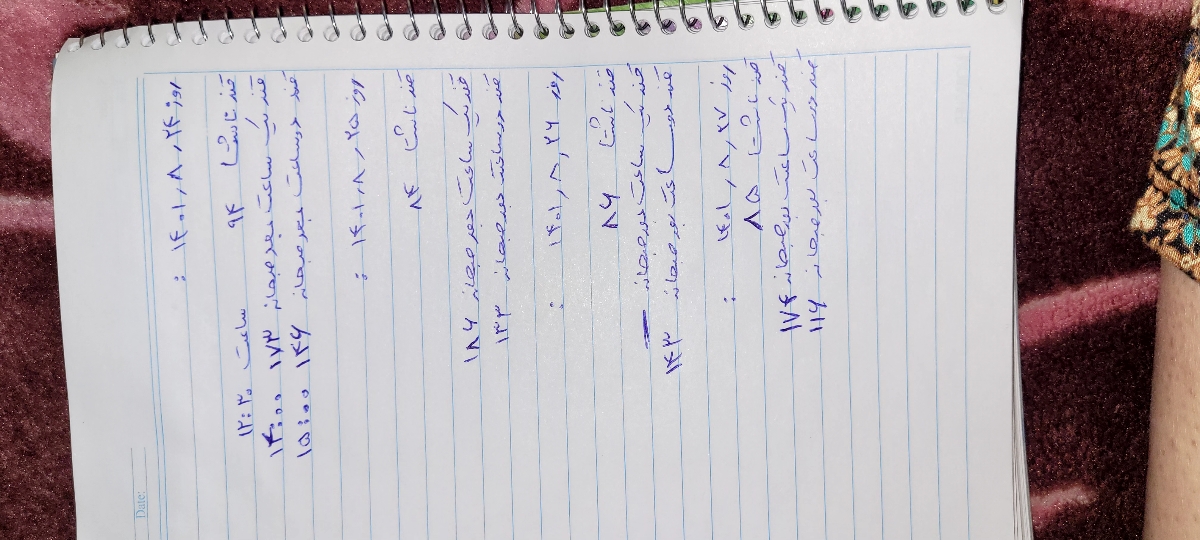 روز ۱۴۰۱,۸,۲۴ :
قند ناشتا ۹۴ ساعت ۱۲:۳۰
قند یک ساعت بعد صبحانه ۱۷۳ ۱۴:۰۰
قند دو ساعت بعد صبحانه ۱۴۶ ۱۵:۰۰
روز ۱۴۰۱,۸,۲۵ :
قند ناشتا ۸۴
قند یک ساعت بعد صبحانه ۱۸۶
قند دو ساعت بعد صبحانه ۱۳۳
روز ۱۴۰۱,۸,۲۶ :
قند ناشتا ۸۶
قند یک ساعت بعد صبحانه —
قند دو ساعت بعد صبحانه ۱۴۳
روز ۱۴۰۱,۸,۲۷ :
قند ناشتا ۸۵
قند یک ساعت بعد صبحانه ۱۷۴
قند دو ساعت بعد صبحانه ۱۱۶
Date: